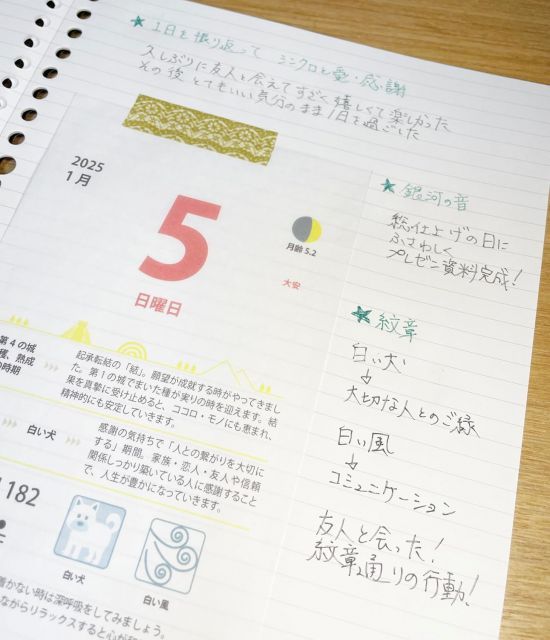 ★ 1日を振り返って シンクロと愛・感謝
久しぶりに友人と会えてすごく嬉しくて楽しかった
その後 とてもいい気分のまま1日を過ごした
2025
1月
5
日曜日
月齢 5.2
大安
★ 銀河の音
総仕上げの日に
ふさわしく
プレゼン資料完成!
★ 紋章
白い犬
↓
大切な人とのご縁
白い風
↓
コミュニケーション
友人と会った!
紋章通りの行動!
第4の城
種、熟成
の時期
起承転結の「結」。願望が成就する時がやってきまし
た。第1の城でまいた種が実りの時を迎えます。結
果を真摯に受け止めると、ココロ・モノにも恵まれ、
精神的にも安定していきます。
白い犬
感謝の気持ちで「人との繋がりを大切に
する」期間。家族・恋人・友人や信頼
関係しっかり築いている人に感謝すること
で、人生が豊かになっていきます。
1182
白い犬
白い風
着かない時は深呼吸をしてみましょう。
ながらリラックスすると心が